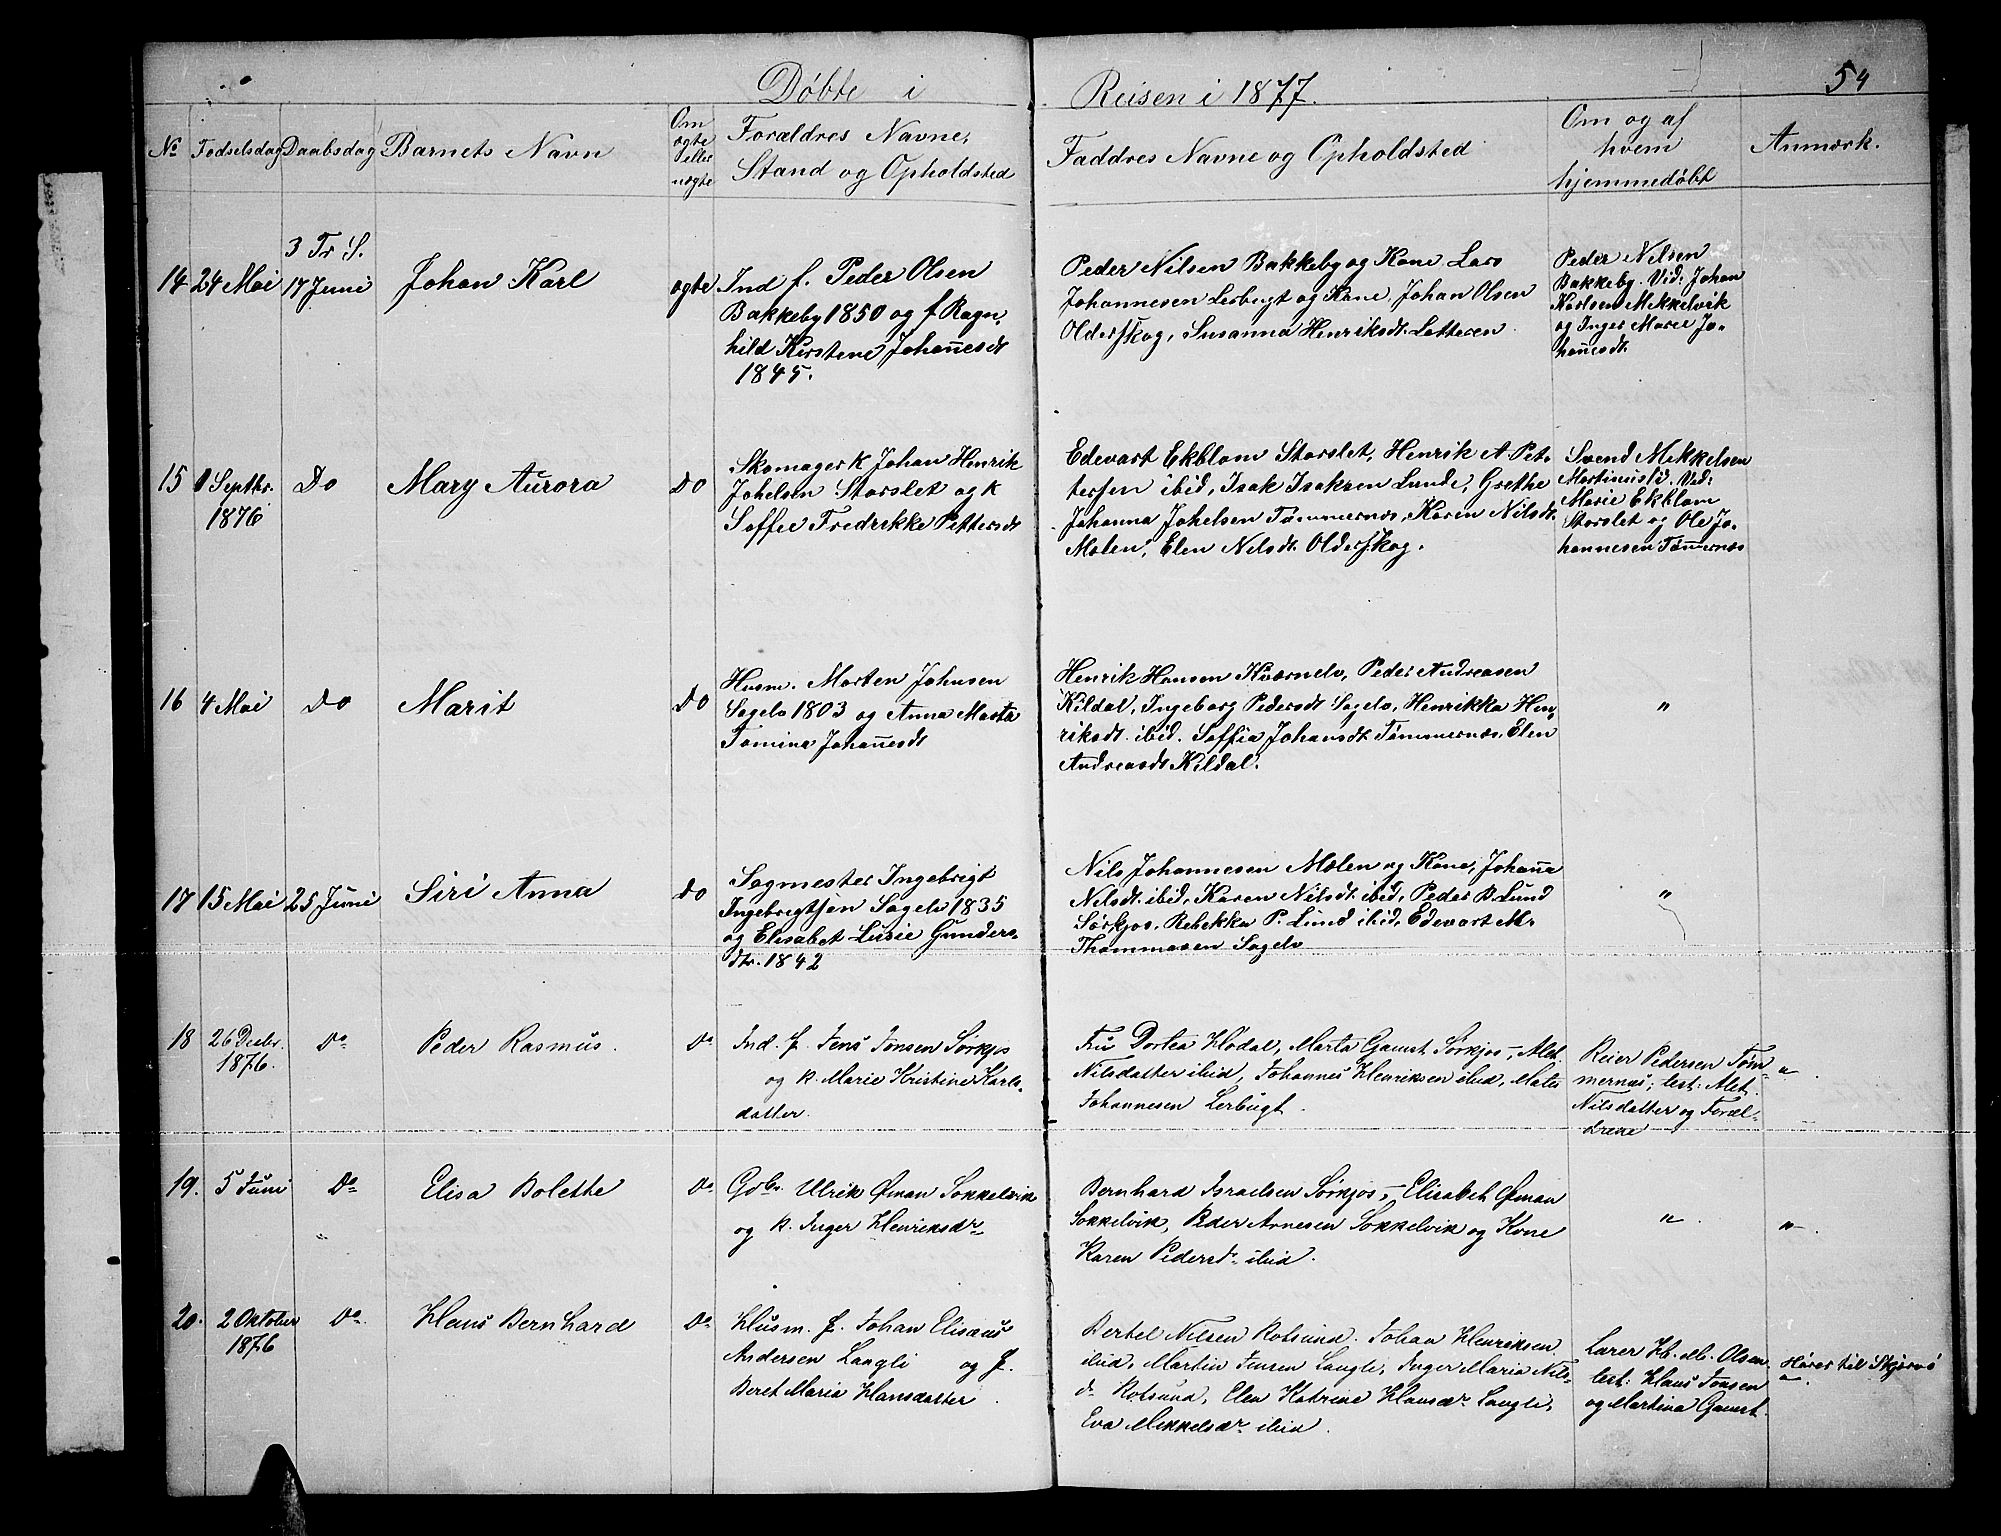 Døbte i Reisen i 1877. 54
No Fødselsdag Daabsdag Barnets Navn Om ægte eller uægte Forældres Navne, Stand og Opholdsted Faddres Navne og Opholdsted Om og af hvem hjemmedøbt Anmærk.
3 Tr S.
14 24 Mai 17 Juni Johan Karl ægte
Ind f. Peder Olsen
Bakkeby 1850 og f Ragn-
hild Kirstene Johannesdt
1845.
Peder Nilsen Bakkeby og Kone Lars
Johannesen Lerbugt og Kone, Johan Olsen
Olderskog, Susanna Henriksdt. Lotteren
Peder Nilsen
Bakkeby. Vid. Johan
Karlsen Mikkelvik
og Inger Marie Jo-
hannesdt.
15 1 Septbr. 1876 Do Mary Aurora Do
Skomager k Johan Henrik
Johelsen Storslet og k
Soffie Fredrikke Pettersdt
Edevart Ekblom Storslet, Henrik A Pet-
tersen ibid, Isak Isaksen Lunde, Grethe
Johanna Johelsen Tømmernæs, Karen Nilsdt.
Molen, Elen Nilsdt. Olderskog.
Svend Mikkelsen
Martinustid. Vid:
Marie Ekblom
Storslet og Ole Jo-
hannesen Tømmernæs
16 4 Mai Do Marit Do
Husm. Morten Johnsen
Sagelv 1803 og Anna Marta
Tomina Johannesdt
Henrik Hansen Kværnelv, Peder Andreasen
Kildal, Ingeborg Pedersdt Sagelv, Henrikka Hen-
riksdt. ibid. Soffia Johansdt Tømmernæs, Elen
Andreasdt Kildal.
"
17 15 Mai 25 Juni Siri Anna Do
Sagmester Ingebrigt
Ingebrigtsen Sagelv 1835
og Elisabet Lurie Gunders-
dtr. 1842
Nils Johannesen Molen og Kone, Johanna
Nilsdt ibid, Karen Nilsdt ibid, Peder B. Lund
Sørkjos, Rebekka P. Lund ibid, Edevart M.
Thommasen Sagelv
"
18 26 Decbr. 1876. Do Peder Rasmus. Do
Ind. f. Jens Jonsen Sørkjos
og k. Marie Kristine Karls-
datter.
Fru Dortea Hodal, Marta Gamst Sørkjos, Alet
Nilsdatter ibid, Johannes Henriksen ibid, Mats
Johannesen Lerbugt.
Reier Pedersen Tøm-
mernæs; test: Alet
Nilsdatter og Foræl-
drene
"
19. 5 Juni Do Elisa Bolette Do
Gdbr. Ulrik Øman Sokkelvik
og k. Inger Henriksdr
Bernhard Israelsen Sørkjos, Elisabet Øman
Sokkelvik, Peder Arnesen Sokkelvik og Kone
Karen Pedersd. ibid.
" "
20. 2 Oktober 1876 Do Hans Bernhard Do
Husm. f. Johan Elisæus
Andersen Langli og f.
Beret Maria Hansdatter.
Bertel Nilsen Rotsund. Johan Henriksen
ibid, Martin Jensen Langli, Inger Maria Nils-
d. Rotsund, Elen Katrine Hansdr. Langli,
Eva Mikkelsdr. ibid.
Lærer H. M. Olsen
test: Hans Jonsen
og Martina Gamst.
Hører til Skjervø
"